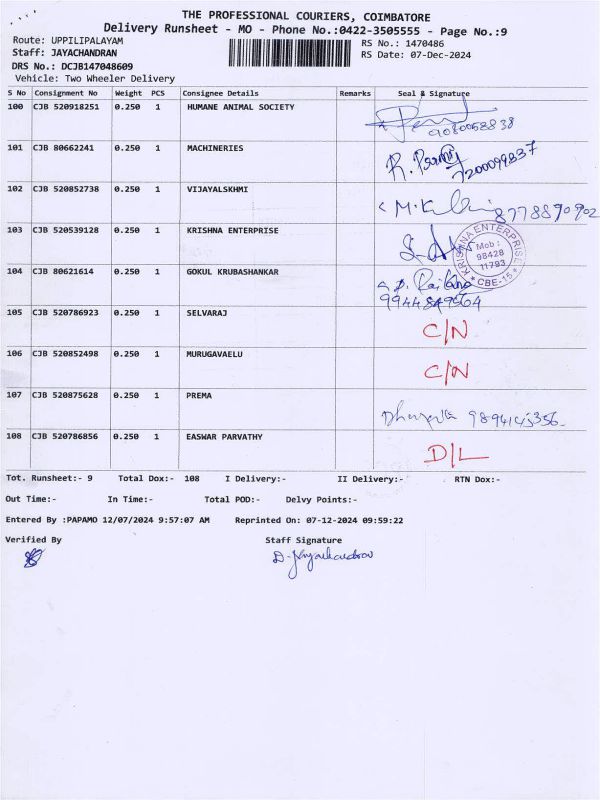 THE PROFESSIONAL COURIERS, COIMBATORE
Delivery Runsheet - MO - Phone No.:0422-3505555 - Page No.:9
Route: UPPILIPALAYAM
RS No.: 1470486
Staff: JAYACHANDRAN
RS Date: 07-Dec-2024
DRS No.: DCJB147048609
Vehicle: Two Wheeler Delivery
S No Consignment No Weight PCS Consignee Details Remarks Seal & Signature
100 CJB 520918251 0.250 1 HUMANE ANIMAL SOCIETY
9080058838
101 CJB 80662241 0.250 1 MACHINERIES
7200099837
102 CJB 520852738 0.250 1 VIJAYALSKHMI
8778890902
103 CJB 520539128 0.250 1 KRISHNA ENTERPRISE
KRISHNA ENTERPRISE Mob : 98428 11793 * CBE-15 *
104 CJB 80621614 0.250 1 GOKUL KRUBASHANKAR
9944849564
105 CJB 520786923 0.250 1 SELVARAJ C/N
106 CJB 520852498 0.250 1 MURUGAVAELU C/N
107 CJB 520875628 0.250 1 PREMA
108 CJB 520786856 0.250 1 EASWAR PARVATHY D/L
Tot. Runsheet:- 9 Total Dox:- 108 I Delivery:- II Delivery:- RTN Dox:-
Out Time:- In Time:- Total POD:- Delvy Points:-
Entered By :PAPAMO 12/07/2024 9:57:07 AM Reprinted On: 07-12-2024 09:59:22
Verified By Staff Signature
D. Jayachandran